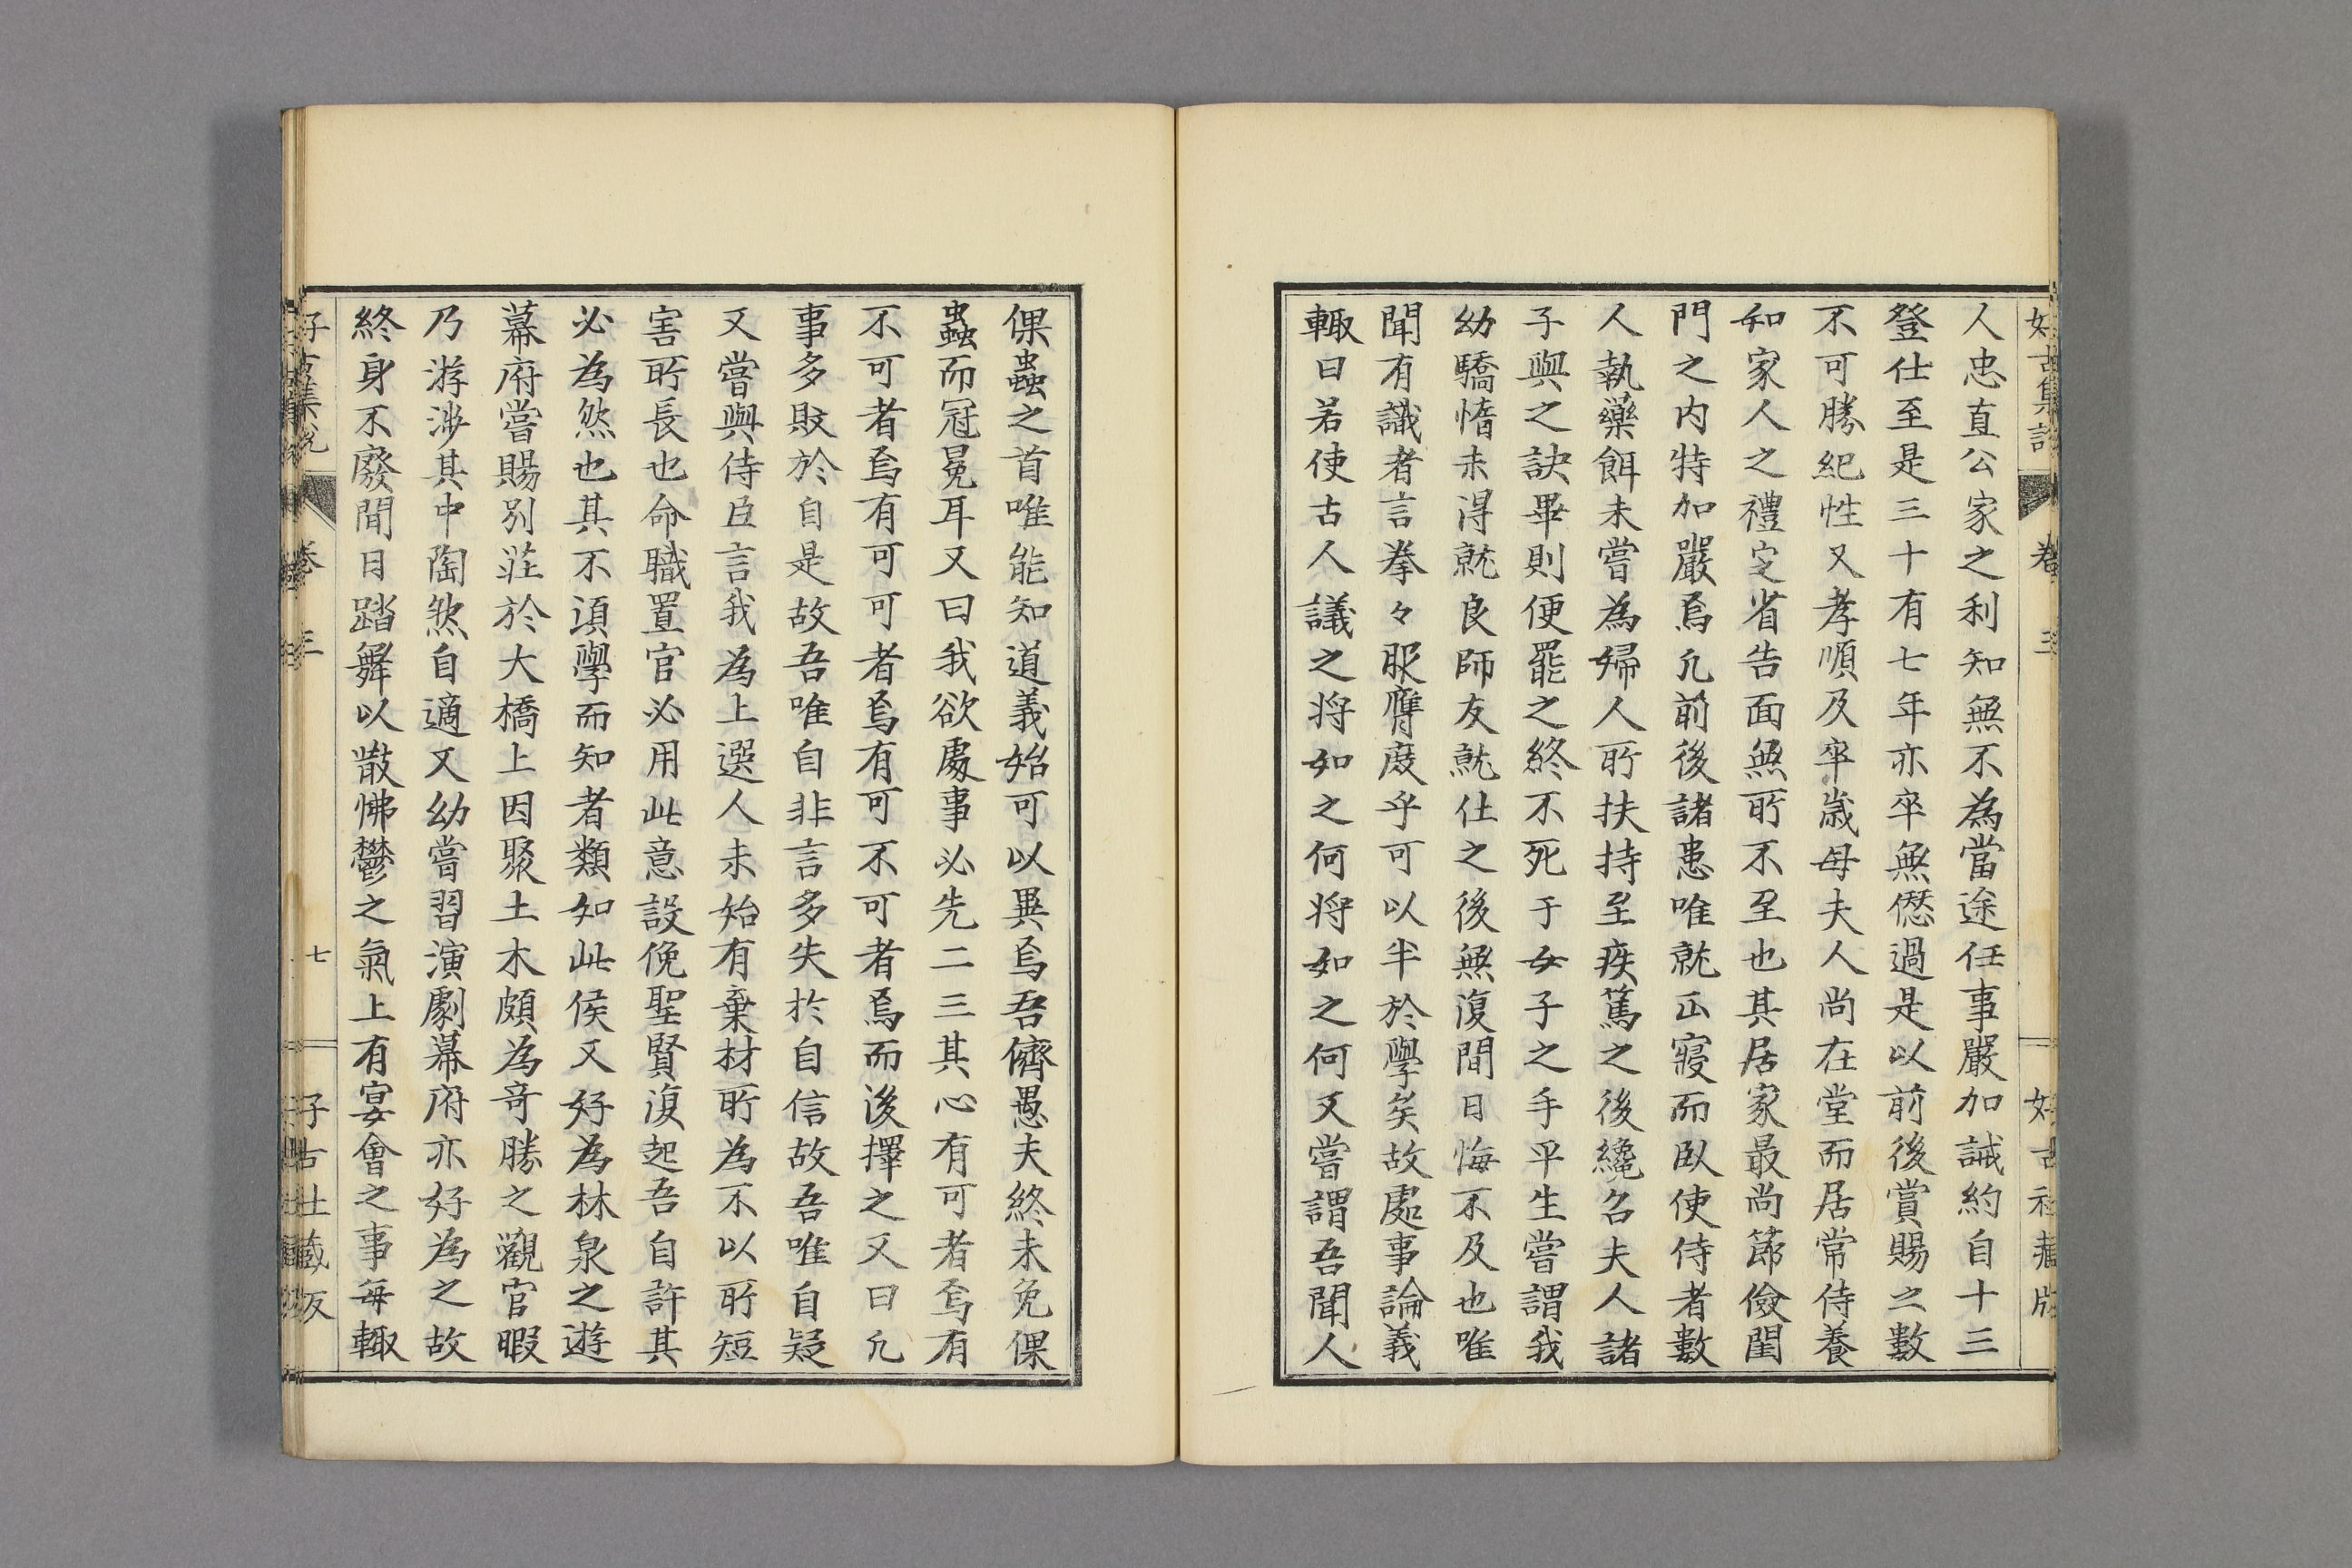 人忠直公家之利知無不為當途任事嚴加誡約自十三
登仕至是三十有七年亦卒無僽過是以前後賞賜之數
不可勝紀性又孝順及卒歲母夫人尚在堂而居常侍養
如家人之禮定省告面無所不至也其居家最尚節儉閨
門之内特加嚴焉凡前後諸患唯就正寢而臥使侍者數
人執藥餌未嘗為婦人所扶持至疾篤之後纔召夫人諸
子與之訣畢則便罷之終不死于女子之手平生嘗謂我
幼驕惰未得就良師友就仕之後無復間日悔不及也唯
聞有識者言拳々服膺庶乎可以半於學矣故處事論義
輙曰若使古人議之将如之何将如之何又嘗謂吾聞人
倮蟲之首唯能知道義始可以異焉吾儕愚夫終未免倮
蟲而冠冕耳又曰我欲處事必先二三其心有可者焉有
不可者焉有可可者焉有可不可者焉而後擇之又曰凡
事多敗於自是故吾唯自非言多失於自信故吾唯自疑
又嘗與侍臣言我為上選人未始有棄材所為不以所短
害所長也命職置官必用此意設俛聖賢復起吾自許其
必為然也其不須學而知者類如此侯又好為林泉之遊
幕府嘗賜别莊於大橋上因聚土木頗為竒勝之觀官暇
乃游渉其中陶然自適又幼嘗習演劇幕府亦好為之故
終身不廢間日踏舞以散怫鬱之氣上有宴會之事每輙
好古集説 卷三 七 好古社藏版